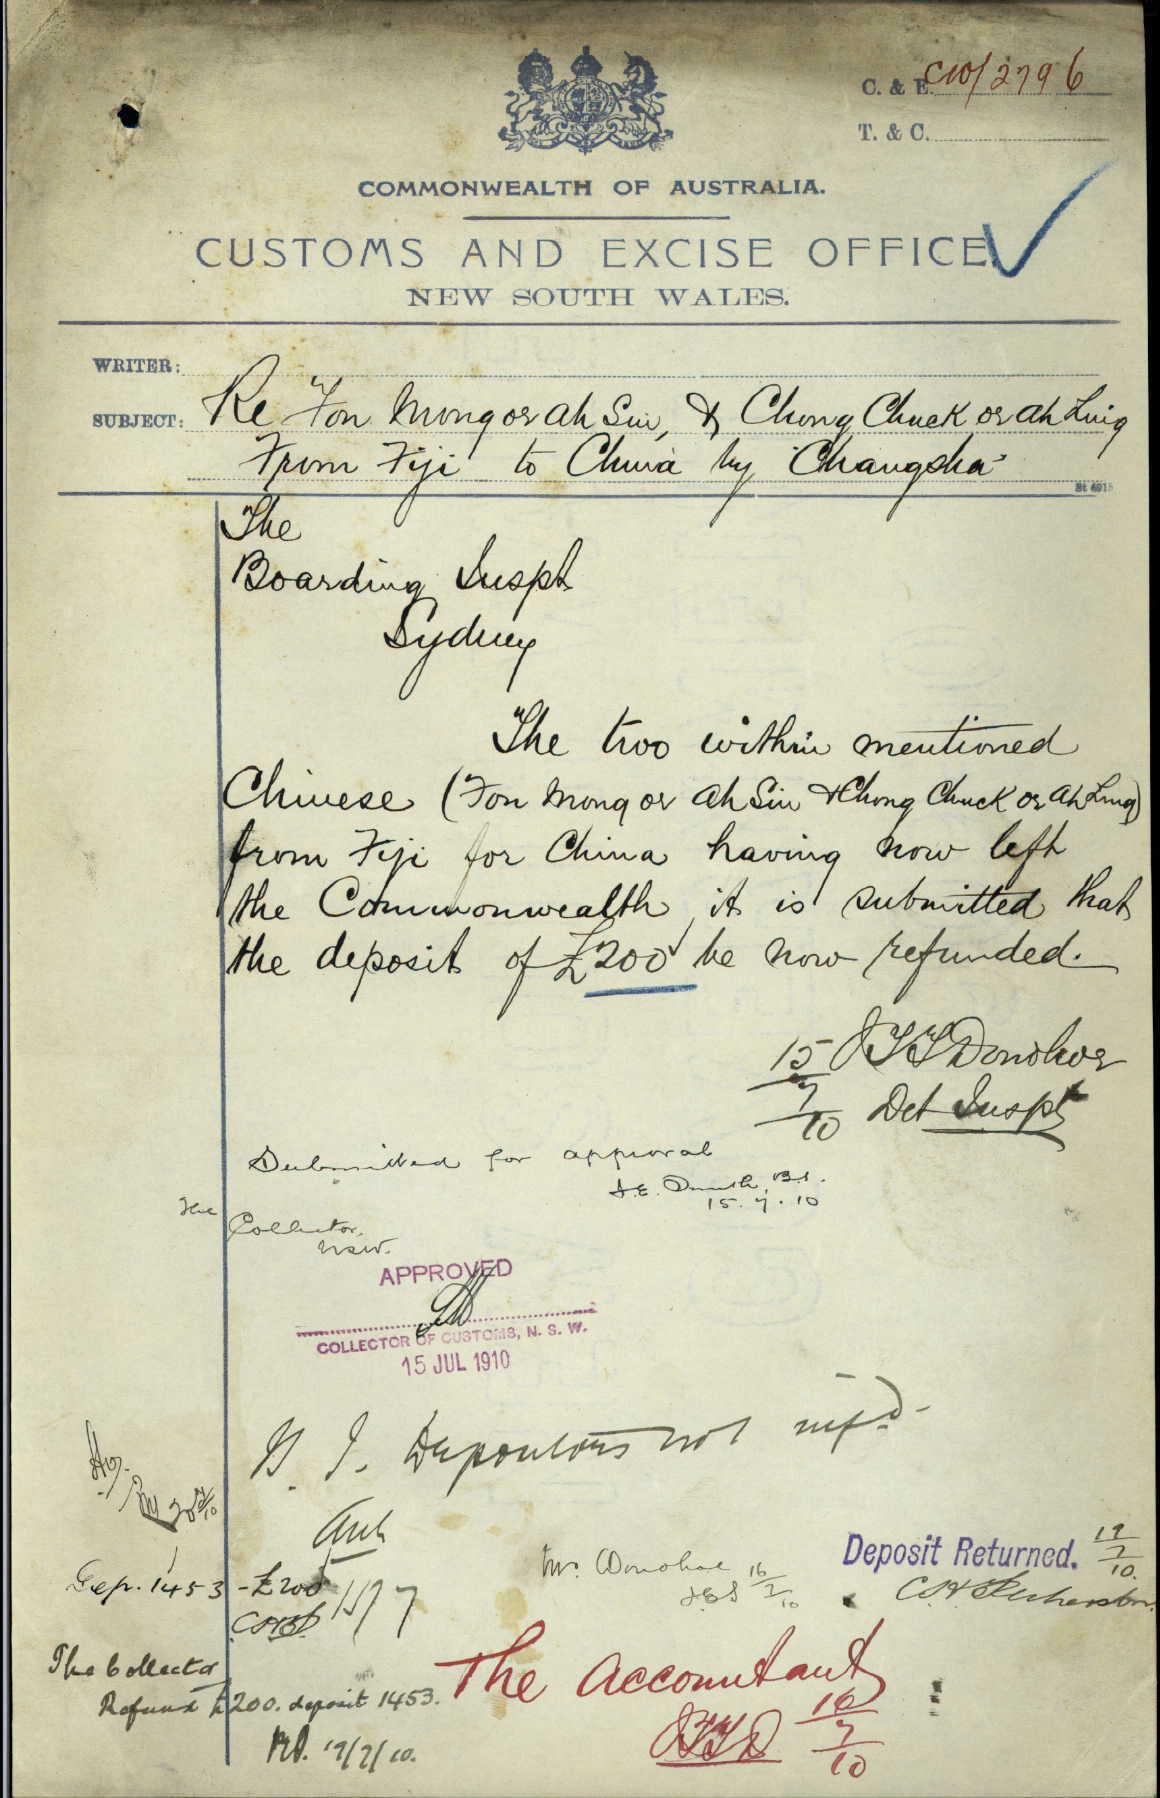 C. & E. C10/2796
T. & C.
COMMONWEALTH OF AUSTRALIA.
CUSTOMS AND EXCISE OFFICE.
NEW SOUTH WALES.
WRITER:
SUBJECT: Re Fon Mong or Ah Sin, & Chong Chuck or Ah Ling
From Fiji to China by "Changsha"
The
Boarding Inspt
Sydney
The two within mentioned
Chinese (Fon Mong or Ah Sin & Chong Chuck or Ah Ling)
from Fiji for China having now left
the Commonwealth, it is submitted that
the deposit of £200 be now refunded.
15/7/10 JTT Donohoe
Det Inspt
Submitted for approval
15.7.10
The Collector,
NSW.
APPROVED
COLLECTOR OF CUSTOMS, N. S. W.
15 JUL 1910
B. I. Depositors not
Dep. 1453 - £200
15/7
Mr. Donohoe 16/7/10
Deposit Returned. 19/7/10.
The Collector
Refund £200. deposit 1453.
19/7/10.
The Accountant
JTTD 16/7/10